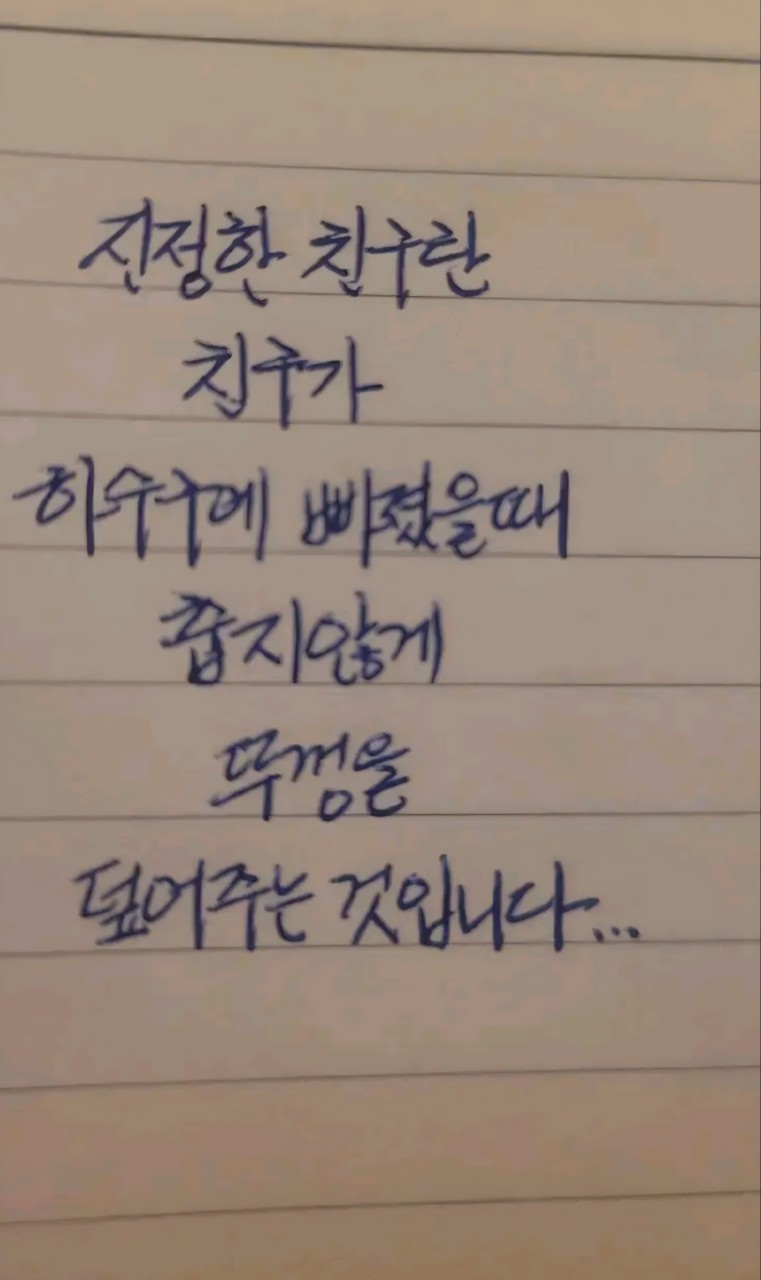 진정한 친구란
친구가
하수구에 빠졌을때
춥지않게
뚜껑을
덮어주는 것입니다...